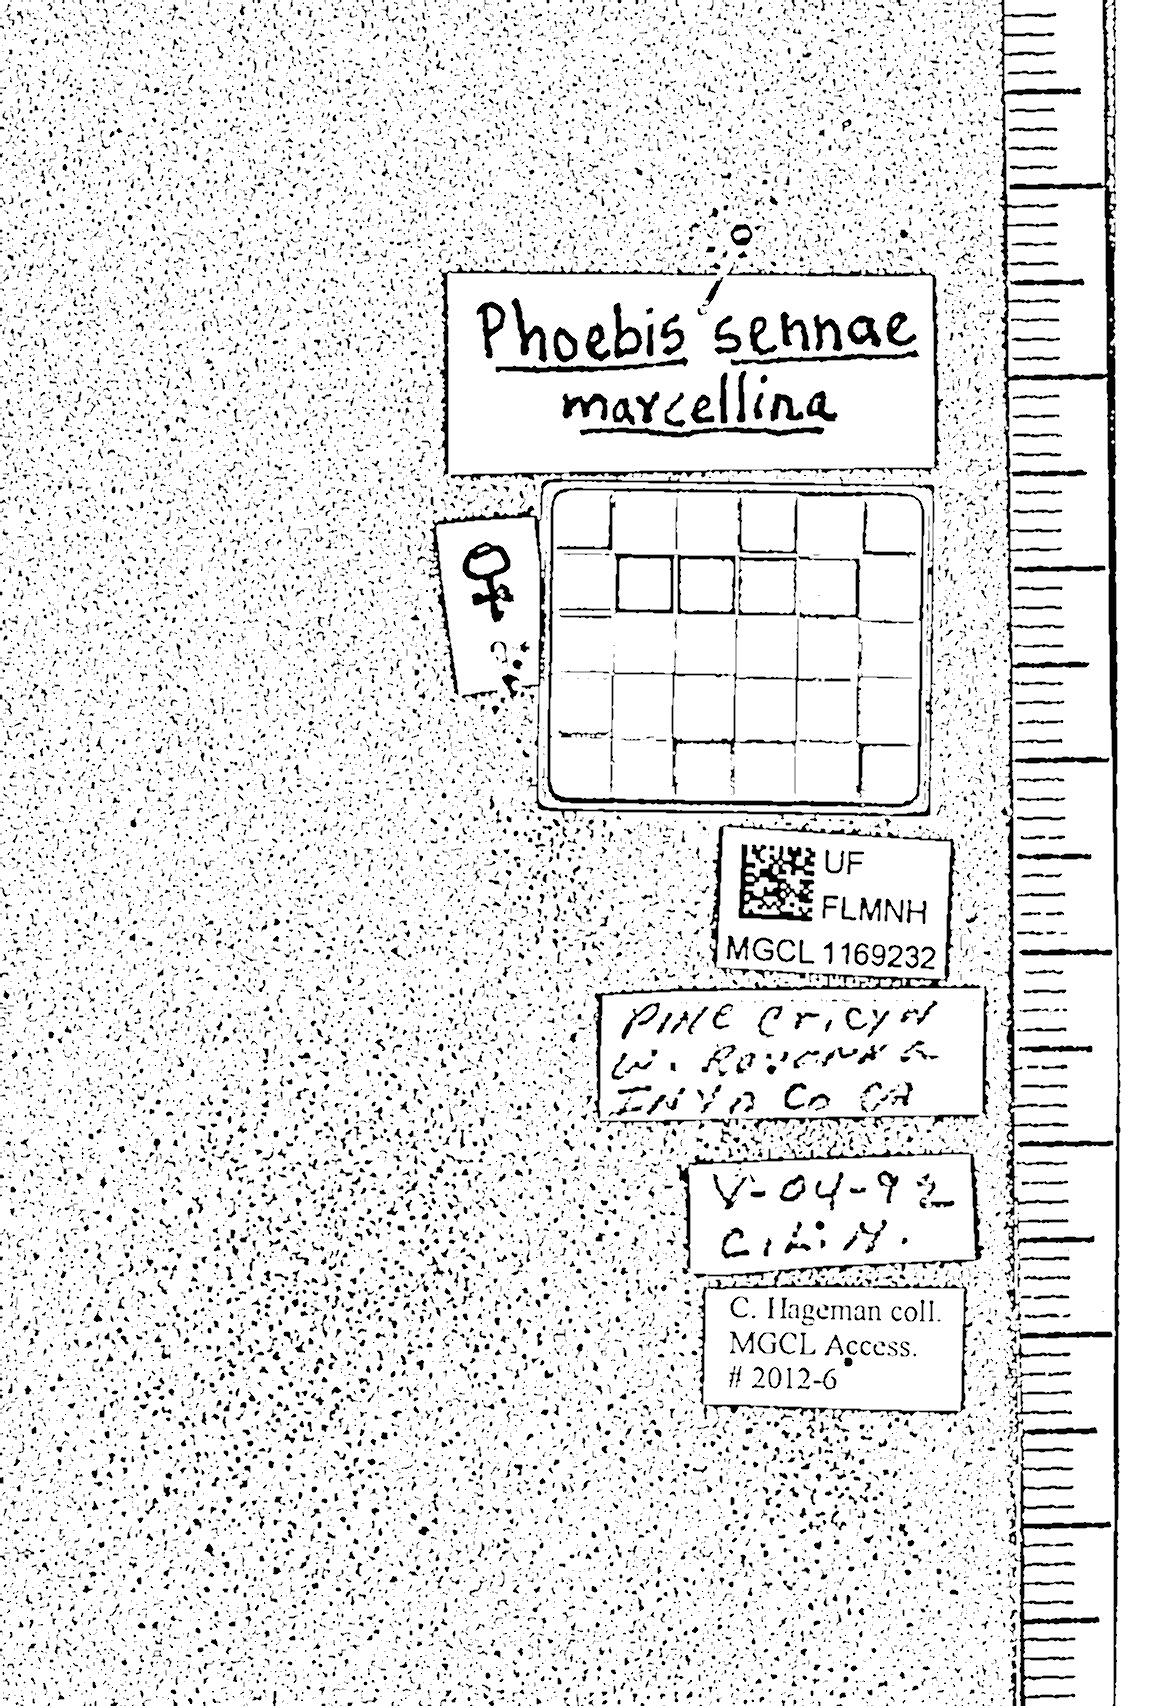 Phoebis sennae
marcellina
♀
UF
FLMNH
MGCL 1169232
PINE Cr. CYN
W. ROVANNA
INYO Co CA
V-04-92
C. L. H.
C. Hageman coll.
MGCL Access.
# 2012-6